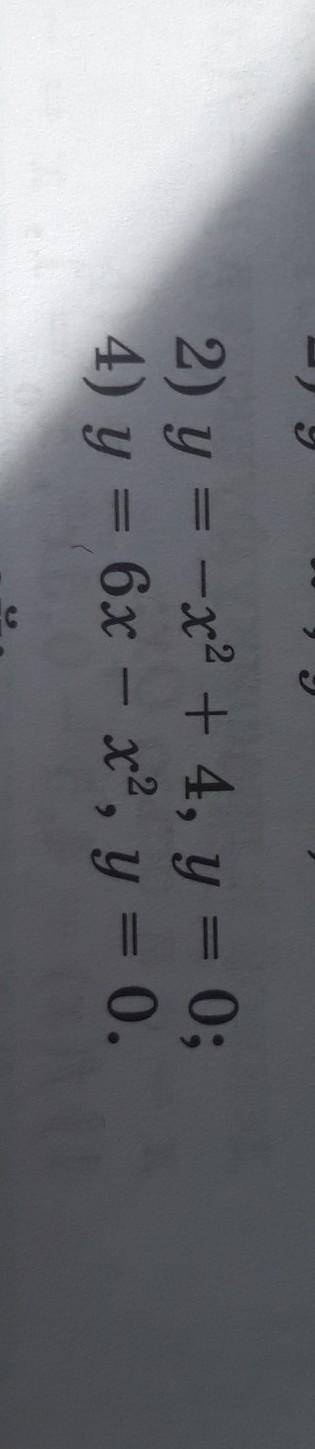 2) y = −x² + 4, y = 0;
4) y = 6x − x², y = 0.